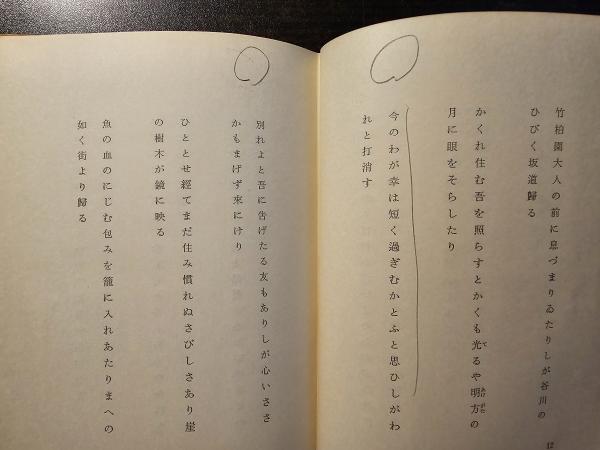 竹柏園大人の前に息づまりゐたりしが谷川の
ひびく坂道歸る
かくれ住む吾を照らすとかくも光るや明方の
て
あけがた
月に眼をそらしたり
今のわが幸は短く過ぎむかとふと思ひしがわ
れと打消す
12
別れよと吾に告げたる友もありしが心いささ
かもまげず來にけり
ひととせ經てまだ住み慣れぬさびしさあり崖
の樹木が鏡に映る
魚の血のにじむ包みを籠に入れあたりまへの
如く街より歸る